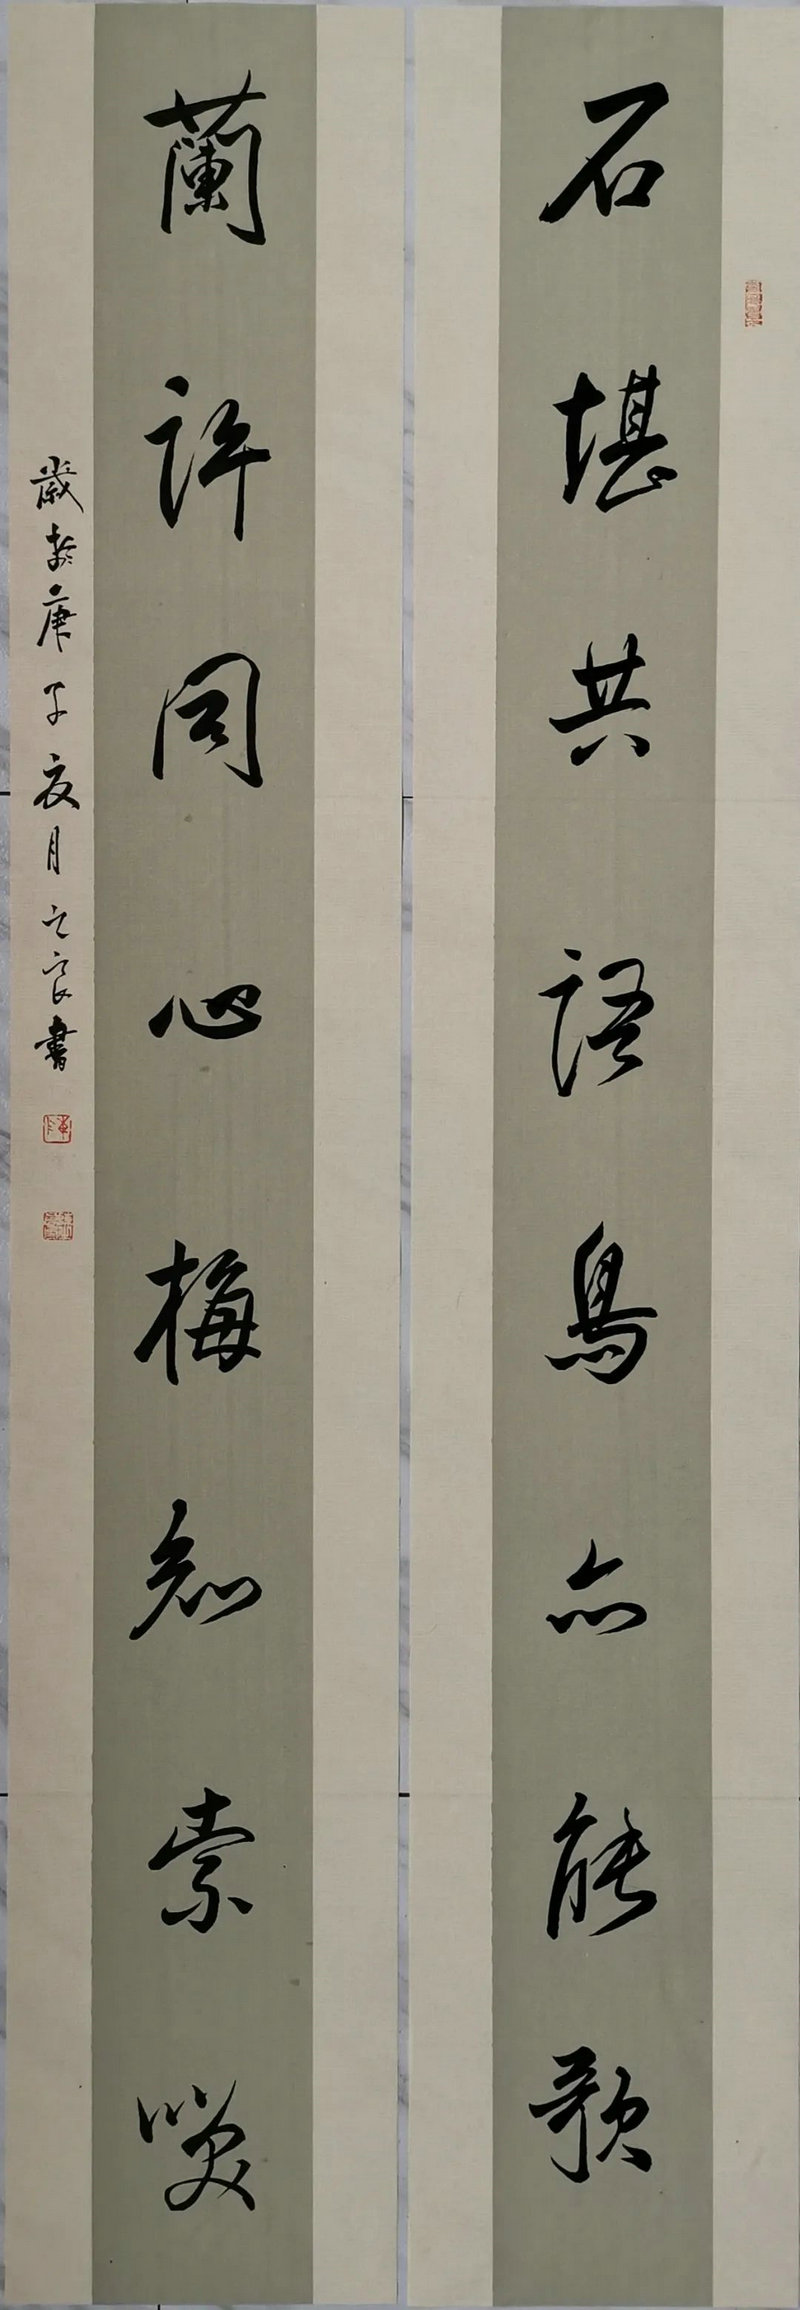 石堪共語鳥亦能歌
蘭許同心梅知索笑
歲於庚子夏月之良書